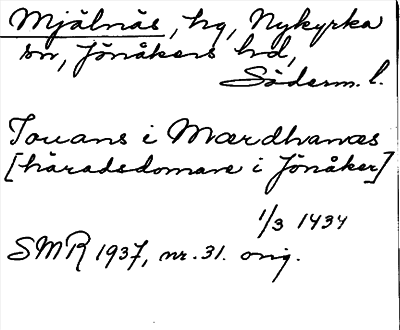 Mjälnäs, hg, Nykyrka
sn, Jönåkers hd,
Söderm. l.
Touans i Mærdhanæs
[häradsdomare i Jönåker]
1/3 1434
SMR 1937, nr. 31. orig.